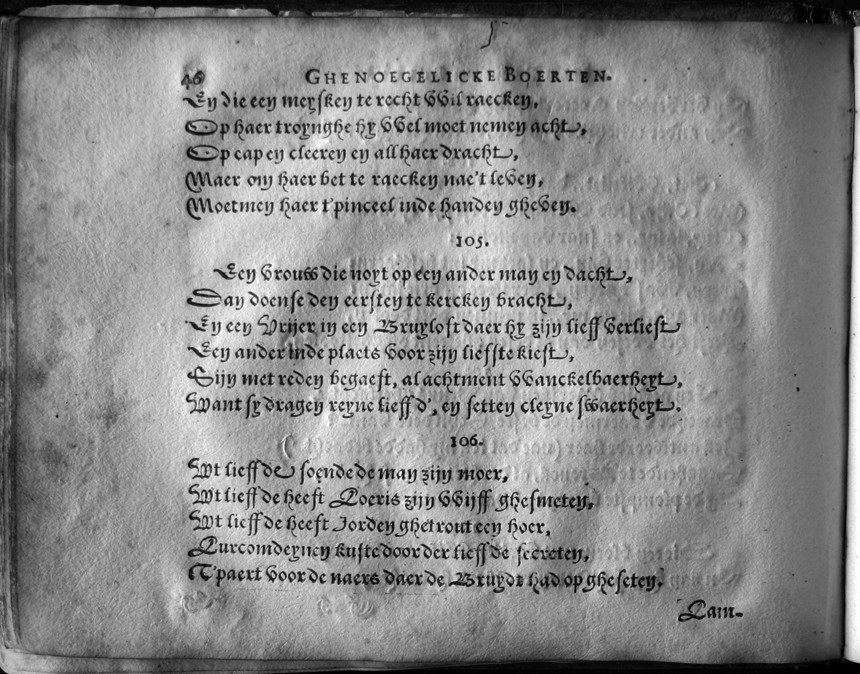 46 GHENOEGELICKE BOERTEN.
En die een meysken te recht wil raecken,
Op haer troynghe hy wel moet nemen acht,
Op cap en cleeren en all haer dracht,
Maer om haer bet te raecken nae't leven,
Moetmen haer t'pinceel inde handen gheven.
105.
Een vrouw die noyt op een ander man en dacht,
Dan doense den eersten te kercken bracht,
En een Vrijer in een Bruyloft daer hy zijn lieff verliest
Een ander inde plaets voor zijn liefste kiest,
Sijn met reden begaeft, al achtment wanckelbaerheyt,
Want sy dragen reyne lieffd', en setten cleyne swaerheyt.
106.
Wt lieffde soende de man zijn moer,
Wt lieffde heeft Loeris zijn wijff ghesmeten,
Wt lieffde heeft Jorden ghetrout een hoer,
Lurcomdeynen kuste door der lieffde secreten,
T'paert voor de naers daer de Bruydt had op gheseten.
Lam-